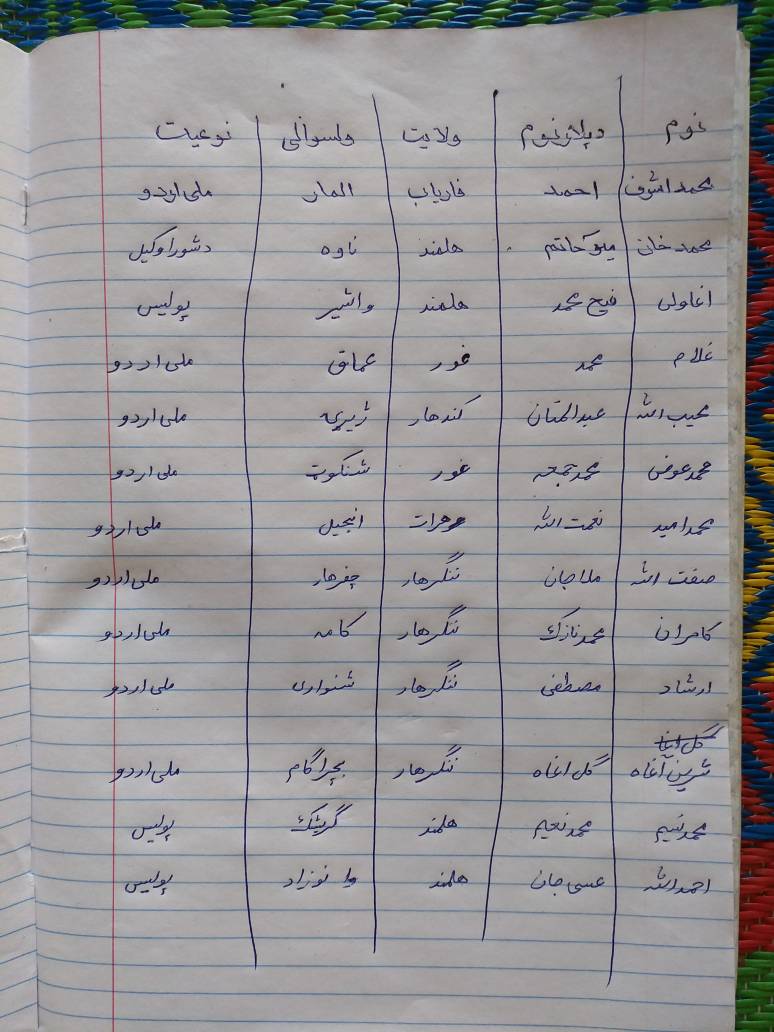 نوم دپلار نوم ولایت ولسوالی نوعیت
محمد اشرف احمد فاریاب المار ملی اردو
محمد خان حاتم هلمند ناوه دشورا وکیل
اغاولی فتح محمد هلمند واشیر پولیس
غلام محمد غور عماق ملی اردو
محیب الله عبدالمتان کندهار ژیړی ملی اردو
محمد عوض محمد جمعه غور شنکوټ ملی اردو
محمد امید نعمت الله هرات انجیل ملی اردو
صفت الله ملا جان ننگرهار چفرهار ملی اردو
کامران محمد نازک ننگرهار کامه ملی اردو
ارشاد مصطفی ننگرهار شنواری ملی اردو
گل اغا
شرین آغاه گل اغاه ننگرهار بچراگام ملی اردو
محمد نسیم محمد نعیم هلمند گرشک پولیس
احمد الله عسی جان هلمند نوزاد پولیس